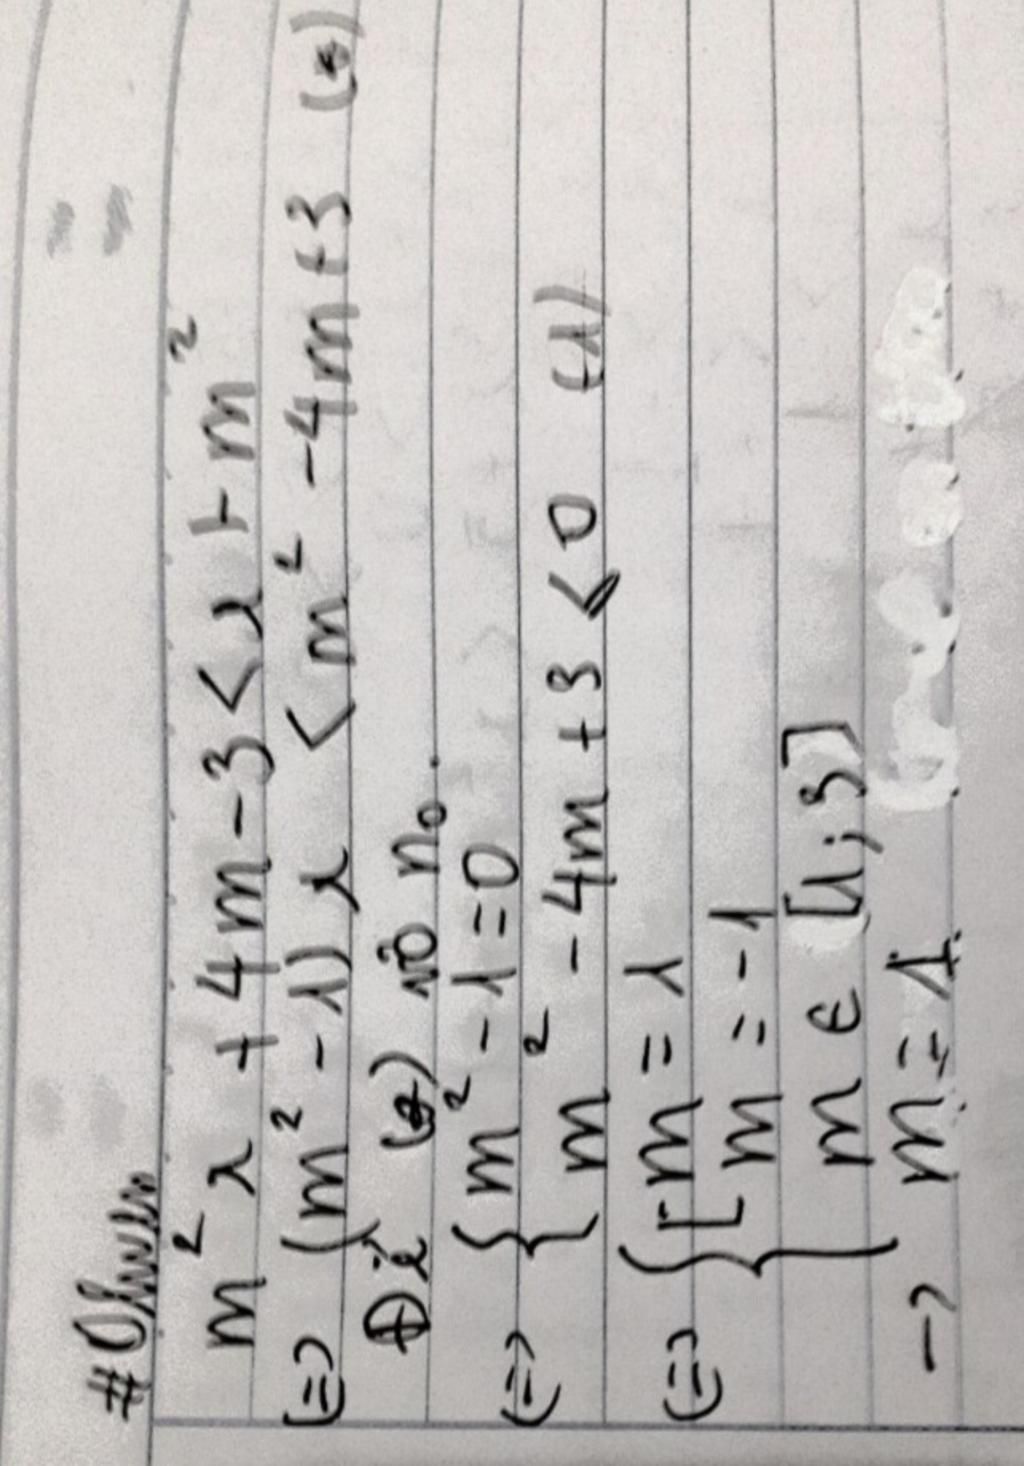 m² x + 4m - 3 < x + m²
(=) (m² - 1) x < m² - 4m + 3 (*)
Để (*) vô n₀.
(=) { m² - 1 = 0
m² - 4m + 3 ≤ 0 (1)
(=) { [ m = 1
m = -1
m ∈ [1; 3]
-> m = 1.